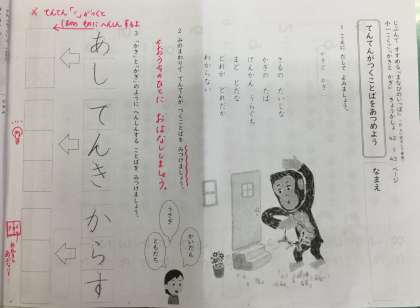 じぶんで すすめる「まなびのいっぽ」
小一こくご「かきと かぎ」 きょうかしょ 42 ~ 43 ページ
てんてんがつくことばをあつめよう
なまえ
1 こえに だして よみましょう。
さるの だいじな
かぎの たば
げんかん うらぐち
まど とだな
どれが どれだか
わからない
2 みのまわりで、てんてんが つくことばを みつけましょう。
おうちのひとに おはなししましょう。
うさぎ
かいだん
ともだち
3 「かき」と「かぎ」のように へんしんする ことばを みつけましょう。
あし
てんき
からす
★ てんてん「゛」がつくと